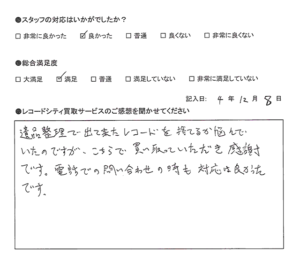 ●スタッフの対応はいかがでしたか？
□非常に良かった ☑良かった □普通 □良くない □非常に良くない
●総合満足度
□大満足 ☑満足 □普通 □満足していない □非常に満足していない
記入日: 4年12月8日
●レコードシティ買取サービスのご感想を聞かせてください
遺品整理で出て来たレコードを捨てるか悩んで
いたのですが、こちらで買い取っていただき感謝
です。電話での問い合わせの時も対応は良かった
です。